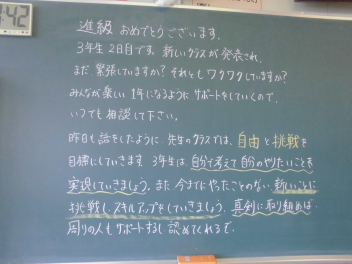 :42
進級 おめでとうございます。
3年生 2日目です。新しいクラスが発表され、
まだ 緊張していますか？それとも ワクワクしていますか？
みんなが楽しい 1年になるように サポートをしていくので、
いつでも相談して下さい。
昨日も 話をしたように 先生のクラスでは、自由 と 挑戦を
目標にしていきます。3年生は、自分で考えて 自分のやりたいことを
実現していきましょう。また 今までにやったことのない 新しいことに
挑戦し、スキルアップをしていきましょう。真剣に取り組めば、
周りの人もサポートするし 認めてくれるぞ。